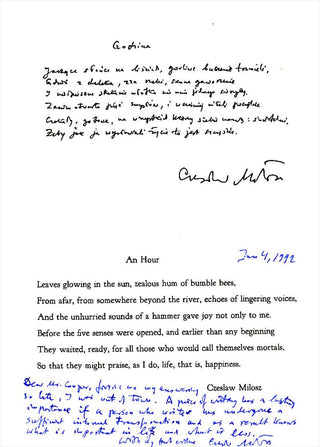 Godzina
Jarzące słońce na liściach, gorliwe buczenie trzmieli,
Gdzieś z daleka, zza rzeki, senne
I
Zanim otwarto pięć zmysłów, i
Czekały, gotowe, na wszystkich którzy siebie nazwą: śmiertelni,
Żeby jak ja wysławiali życie to jest
Czesław Miłosz
Jan 4, 1992
An Hour
Leaves glowing in the sun, zealous hum of bumble bees,
From afar, from somewhere beyond the river, echoes of lingering voices,
And the unhurried sounds of a hammer gave joy not only to me.
Before the five senses were opened, and earlier than any beginning
They waited, ready, for all those who would call themselves mortals,
So that they might praise, as I do, life, that is, happiness.
Czeslaw Milosz
Dear Mr. Cooper, forgive me my answering
so late, I was out of town. A piece of writing has a lasting
importance if a person who writes has undergone a
sufficient internal transformation and as a result knows
what is important in life and what is less.
With